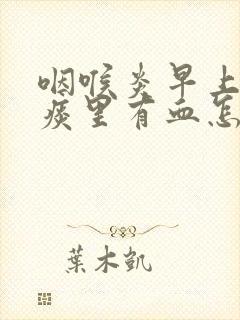 咽喉炎早上
痰里有血怎
葉木凯